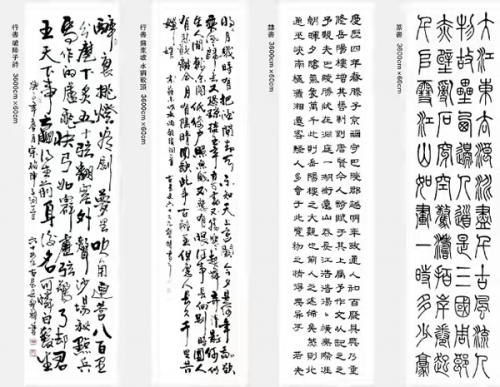 篆書 3600cm×60cm
大江東去浪淘盡千古風流人
物故壘西邊人道是三國周郎
赤壁亂石穿空驚濤拍岸
江山如畫一時多少豪
隸書 3600cm×60cm
慶曆四年春滕子京謫守巴陵郡越明年政通人和百廢具興乃重
脩岳陽樓增其舊制刻唐賢今人詩賦于其上屬予作文以記之
予觀夫巴陵勝狀在洞庭一湖銜遠山吞長江浩浩湯湯橫無際涯
朝暉夕陰氣象萬千此則岳陽樓之大觀也前人之述備矣然則北
通巫峽南極瀟湘遷客騷人多會于此覽物之情得無異乎 若夫
行書 蘇東坡 水調歌頭 3600cm×60cm
明月幾時有把酒問青天不知天上宮闕今夕是何年我欲
乘風歸去又恐瓊樓玉宇高處不勝寒起舞弄清影何似在
人間轉朱閣低綺戶照無眠不應有恨何事長向別時圓人
有悲歡離合月有陰晴圓缺此事古難全但願人長久千里共
嬋娟
行書 破陣子詩 3600cm×60cm
醉裏挑燈看劍夢回吹角連營八百里
分麾下炙五十弦翻塞外聲沙場秋點兵
馬作的盧飛快弓如霹靂弦驚了却君
王天下事贏得生前身後名可憐白髮生